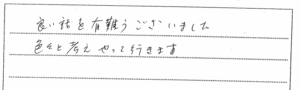 良い話を有難うございました
色々と考えやって行きます